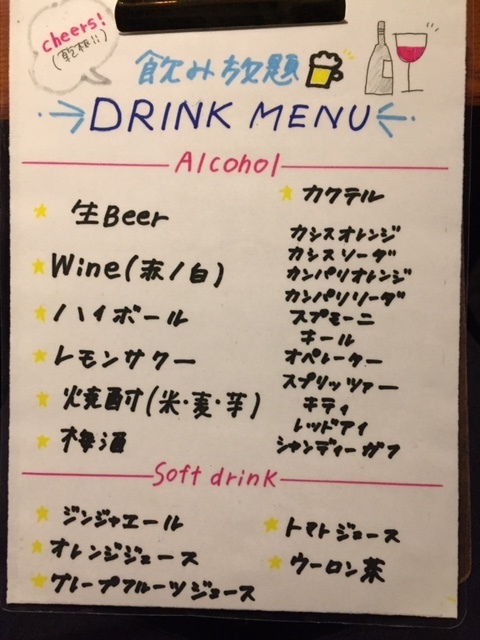 cheers!
(乾杯!!)
飲み放題
DRINK MENU
Alcohol
生Beer
Wine(赤/白)
ハイボール
レモンサワー
焼酎(米・麦・芋)
梅酒
カクテル
カシスオレンジ
カシスソーダ
カンパリオレンジ
カンパリソーダ
スプモーニ
キール
オペレーター
スプリッツァー
キティ
レッドアイ
シャンディーガフ
Soft drink
ジンジャエール
オレンジジュース
グレープフルーツジュース
トマトジュース
ウーロン茶